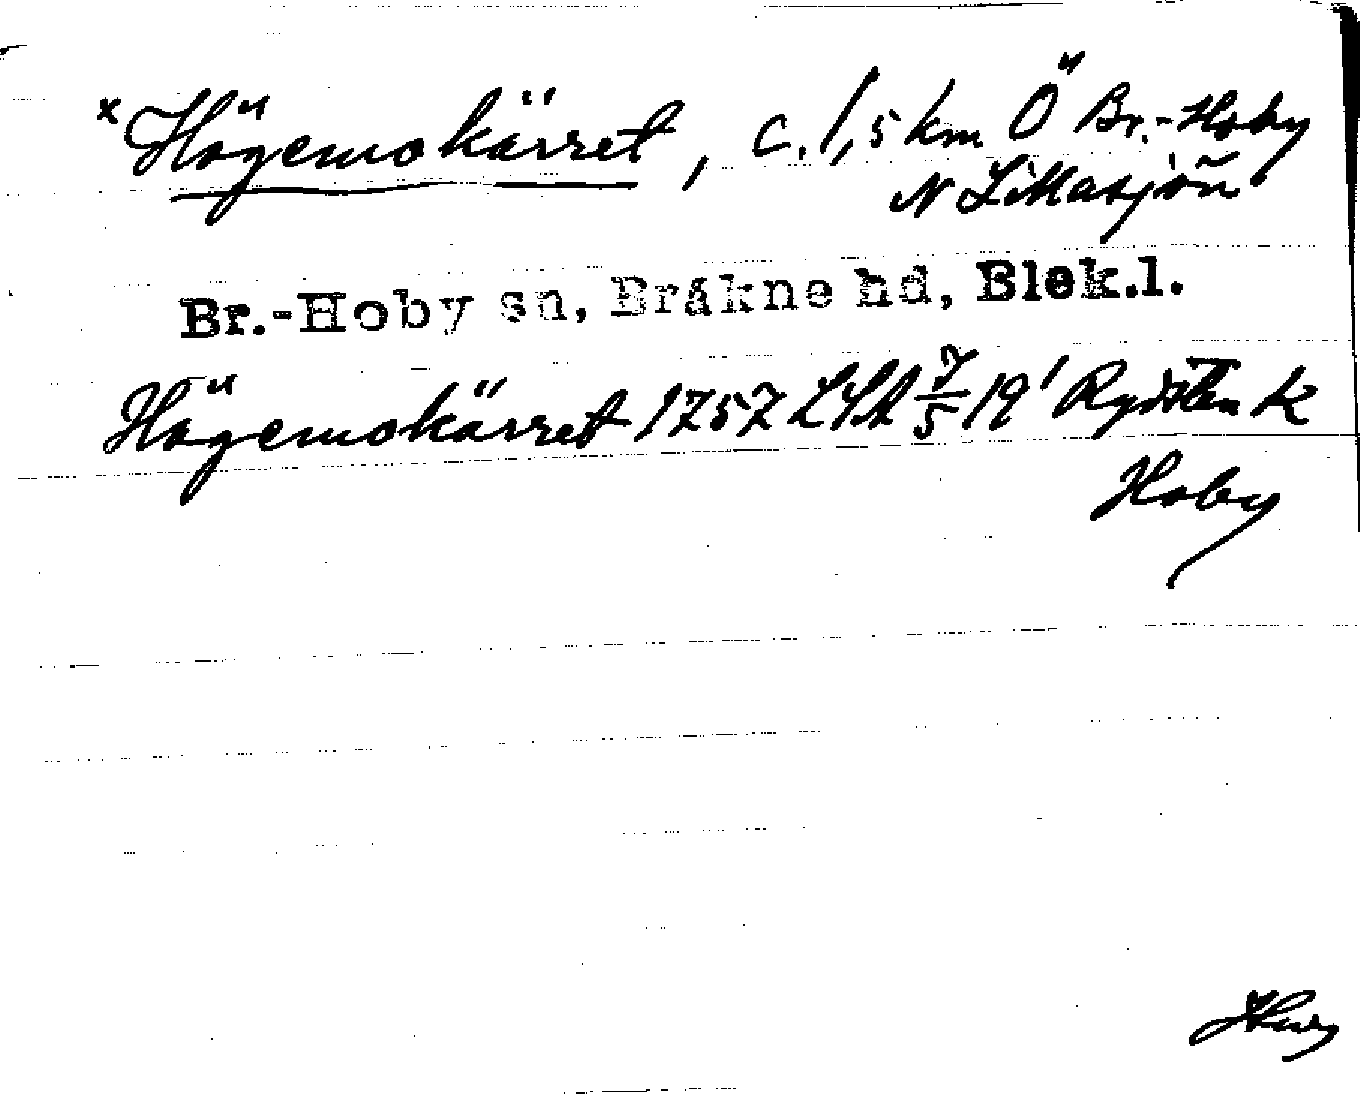 x Högemokärret, c. 1,5 km Ö Br.-Hoby
N Lillasjön
Br.-Hoby sn, Bräkne hd, Blek.l.
Högemokärret 1757 LSA 7/5 19' K
Hoby